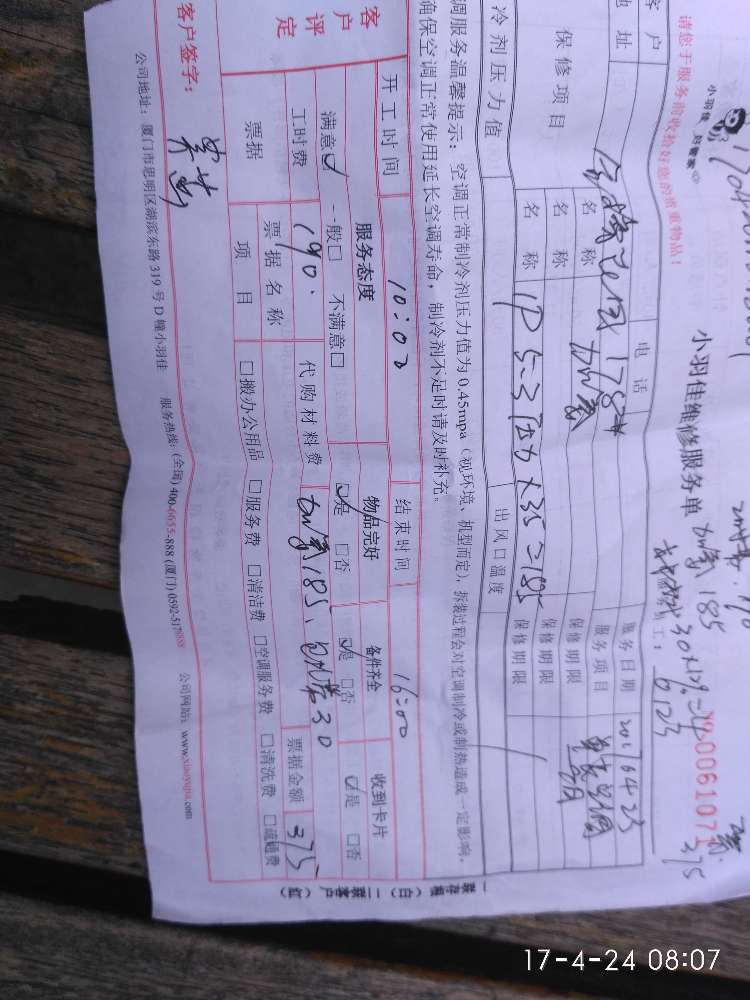 小羽佳 好管家
请您于服务前收拾好您的贵重物品！
小羽佳维修服务单
加氟 185
30×12%=
№0061071
375
6123
客户
地址
电话
1782#
服务日期
2017 04 23
服务项目
保修项目
名称
加氟
保修期限
名称
保修期限
名称
1P 5-3压力×35=185
保修期限
冷剂压力值
出风口温度
调服务温馨提示：空调正常制冷剂压力值为0.45mpa（视环境、机型而定），拆装过程会对空调制冷或制热造成一定影响，
确保空调正常使用延长空调寿命，制冷剂不足时请及时补充。
开工时间
10:00
结束时间
16:00
客户评定
服务态度
物品完好
备件齐全
收到卡片
满意☑ 一般□ 不满意□
☑是 □否
☑是 □否
☑是 □否
工时费
190.
代购材料费
加氟185、包扎带30
票据
票据名称
票据金额
375
项目
□搬办公用品 □服务费 □清洁费 □空调服务费 □清洗费 □疏通费
客户签字：
公司地址：厦门市思明区湖滨东路319号D幢小羽佳
服务热线：(全国) 400-6655-888 (厦门) 0592-5178888
公司网站：www.xiaoyujia.com
一联存根（白） 二联客户（红）
17-4-24 08:07